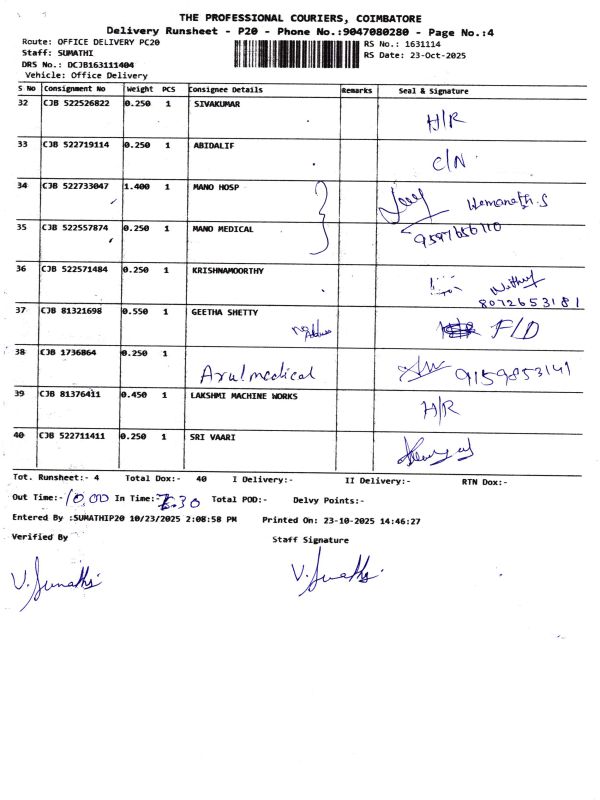 THE PROFESSIONAL COURIERS, COIMBATORE
Delivery Runsheet - P20 - Phone No.:9047080280 - Page No.:4
Route: OFFICE DELIVERY PC20
RS No.: 1631114
Staff: SUMATHI
RS Date: 23-Oct-2025
DRS No.: DCJB163111404
Vehicle: Office Delivery
S No Consignment No Weight PCS Consignee Details Remarks Seal & Signature
32 CJB 522526822 0.250 1 SIVAKUMAR
H/R
33 CJB 522719114 0.250 1 ABIDALIF
C/N
34 CJB 522733047 1.400 1 MANO HOSP
Hemanath.S
35 CJB 522557874 0.250 1 MANO MEDICAL
9597656110
36 CJB 522571484 0.250 1 KRISHNAMOORTHY
8072653181
37 CJB 81321698 0.550 1 GEETHA SHETTY
F/D
38 CJB 1736864 0.250 1
Arul medical 9159853141
39 CJB 81376411 0.450 1 LAKSHMI MACHINE WORKS
H/R
40 CJB 522711411 0.250 1 SRI VAARI
Tot. Runsheet:- 4 Total Dox:- 40 I Delivery:- II Delivery:- RTN Dox:-
Out Time:- 10.00 In Time:- 7.30 Total POD:- Delvy Points:-
Entered By :SUMATHIP20 10/23/2025 2:08:58 PM Printed On: 23-10-2025 14:46:27
Verified By Staff Signature
V. Sumathi V. Sumathi